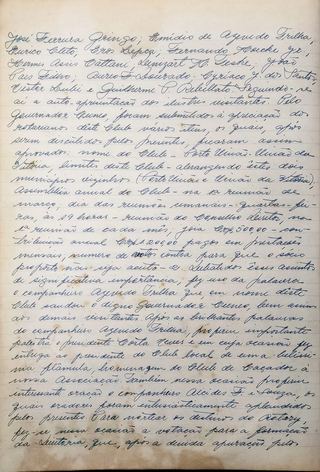 José Ferreira Gringo; Emidio de Azevedo Trilha,
Eurico Cleto, Eros Lepca; Fernando Hoeche Jr.
Hermes Assis Cattani, Leinzart H. Leske, João
Pais Filho; Aureo Labourado; Cyriaco J. dos Santos
Victor Buhi e Guilherme P. Rebillato. Segundo-
a auto-apresentação dos ilustres visitantes. Pelo
Governador Cuneo, foram submetidos à apreciação dos
rotarianos deste Club varios itens, os quais, após
serem discutidos pelos presentes ficaram assim
aprovados: nome do Club - Porto União-União da
Vitoria; limites deste Club - abrangendo estes dois
municipios vizinhos (Porto União e União da Vitoria);
Assembléia anual do Club - na 1ª reunião de
março, dia das reuniões semanais - quartas-fei-
ras, às 19 horas - reunião do conselho diretor na
1ª reunião de cada mês, joia Cr$500,00 - con-
tribuição anual Cr$1.200,00 pagos em prestações
mensais, numero de votos contra para que o socio
proposto não seja aceito - 2. Debatidos esses assuntos
de significativa importância, fez uso da palavra
o companheiro Azevedo Trilha que em nome deste
Club saudou o Governador e Cuneo bem assim
aos demais visitantes. Após as brilhantes palavras
do companheiro Azevedo Trilha, proferiu importante
palestra o presidente Costa Neves e em cuja ocasião fez
entrega ao presidente do Club local de uma belissi-
ma flâmula, homenagem do Club de Caçador à
nossa Associação. Também nessa ocasião proferiu
interessante oração o companheiro Alcides F. e Souza, os
quais oradores foram entusiasticamente aplaudidos
pelos presentes. Para nortear os destinos do Rotary,
fez-se nessa ocasião a votação para a formação
da diretoria, que, após a devida apuração pelos